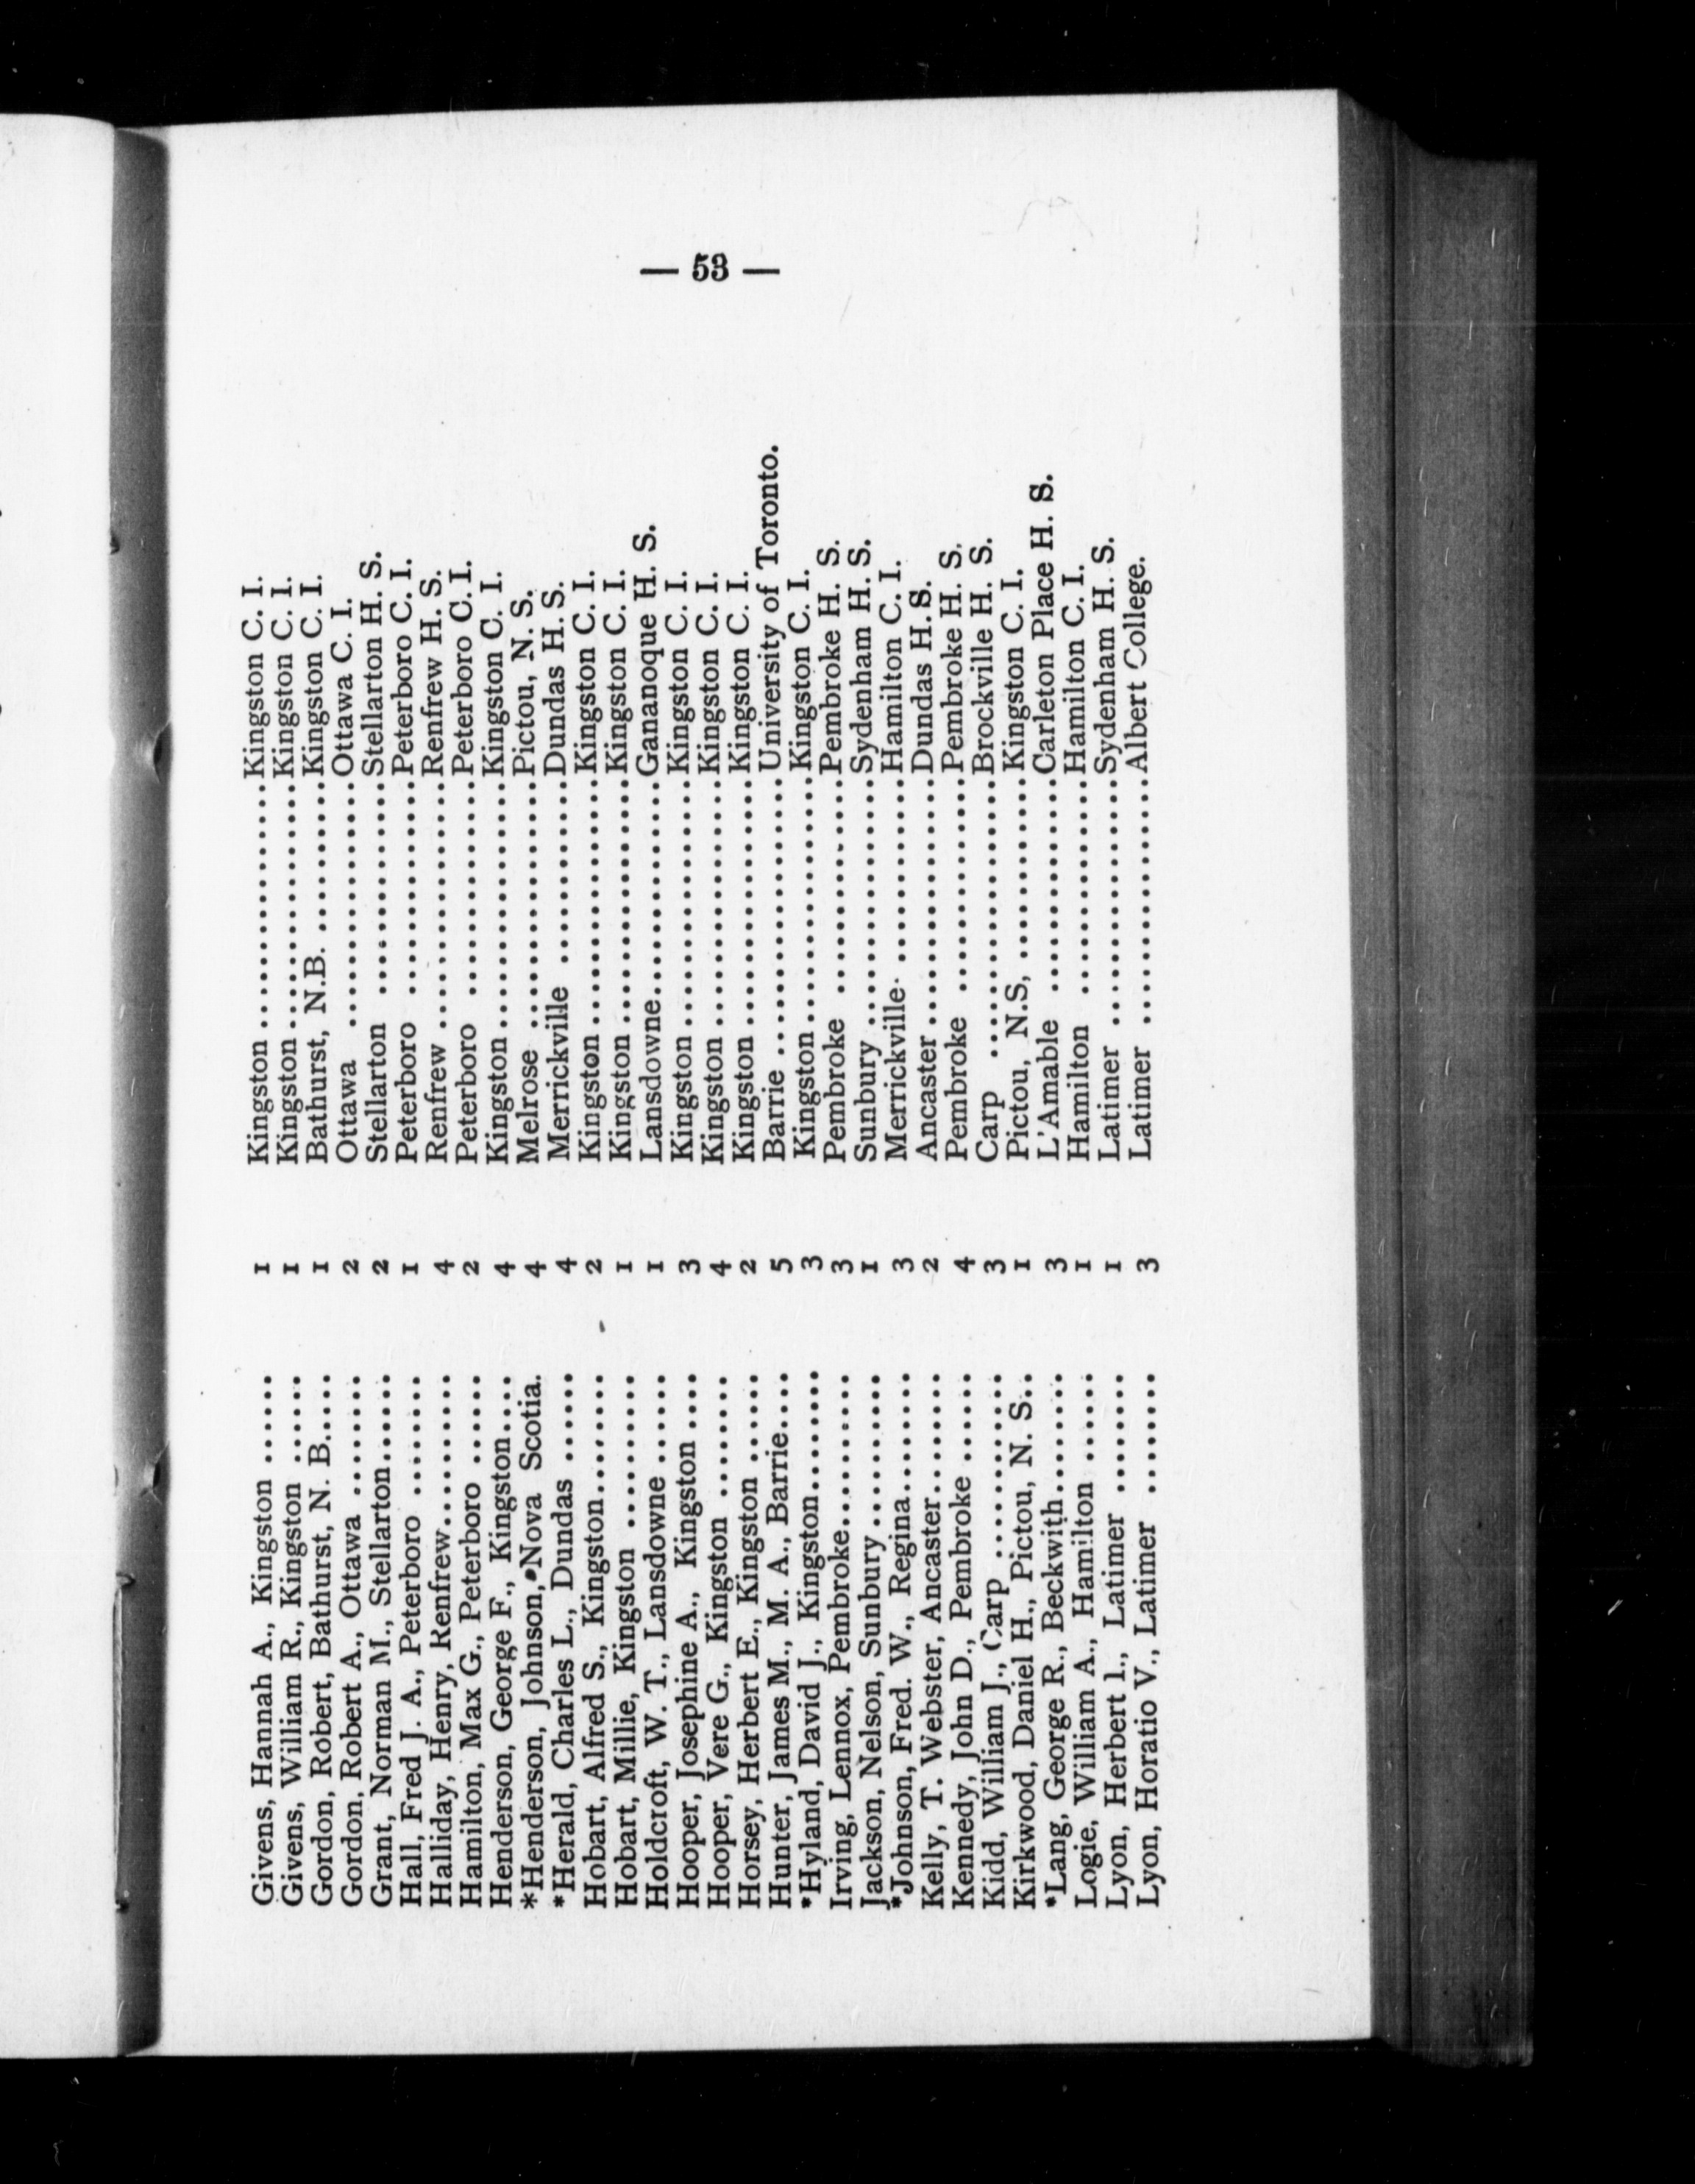 — 53 —
Givens, Hannah A., Kingston ...... 1 Kingston .................. Kingston C. I.
Givens, William R., Kingston ...... 1 Kingston .................. Kingston C. I.
Gordon, Robert, Bathurst, N. B..... 1 Bathurst, N.B. ........... Kingston C. I.
Gordon, Robert A., Ottawa ........ 2 Ottawa .................. Ottawa C. I.
Grant, Norman M., Stellarton...... 2 Stellarton ............... Stellarton H. S.
Hall, Fred J. A., Peterboro ........ 1 Peterboro ............... Peterboro C. I.
Halliday, Henry, Renfrew.......... 4 Renfrew .................. Renfrew H. S.
Hamilton, Max G., Peterboro ...... 2 Peterboro ............... Peterboro C. I.
Henderson, George F., Kingston.... 4 Kingston.................. Kingston C. I.
*Henderson, Johnson, Nova Scotia. 4 Melrose .................. Pictou, N. S.
*Herald, Charles L., Dundas ...... 4 Merrickville ............. Dundas H. S.
Hobart, Alfred S., Kingston........ 2 Kingston .................. Kingston C. I.
Hobart, Millie, Kingston .......... 1 Kingston .................. Kingston C. I.
Holdcroft, W. T., Lansdowne ...... 1 Lansdowne................ Gananoque H. S.
Hooper, Josephine A., Kingston .... 3 Kingston .................. Kingston C. I.
Hooper, Vere G., Kingston ........ 4 Kingston .................. Kingston C. I.
Horsey, Herbert E., Kingston ...... 2 Kingston .................. Kingston C. I.
Hunter, James M., M. A., Barrie.... 5 Barrie .................... University of Toronto.
*Hyland, David J., Kingston........ 3 Kingston .................. Kingston C. I.
Irving, Lennox, Pembroke.......... 3 Pembroke ............... Pembroke H. S.
Jackson, Nelson, Sunbury .......... 1 Sunbury .................. Sydenham H. S.
*Johnson, Fred. W., Regina........ 3 Merrickville. ............. Hamilton C. I.
Kelly, T. Webster, Ancaster........ 2 Ancaster .................. Dundas H. S.
Kennedy, John D., Pembroke ...... 4 Pembroke ............... Pembroke H. S.
Kidd, William J., Carp ............ 3 Carp .................... Brockville H. S.
Kirkwood, Daniel H., Pictou, N. S.. 1 Pictou, N.S, ............. Kingston C. I.
*Lang, George R., Beckwith........ 3 L'Amable ............... Carleton Place H. S.
Logie, William A., Hamilton ...... 1 Hamilton ............... Hamilton C. I.
Lyon, Herbert I., Latimer ........ 1 Latimer .................. Sydenham H. S.
Lyon, Horatio V., Latimer ........ 3 Latimer .................. Albert College.